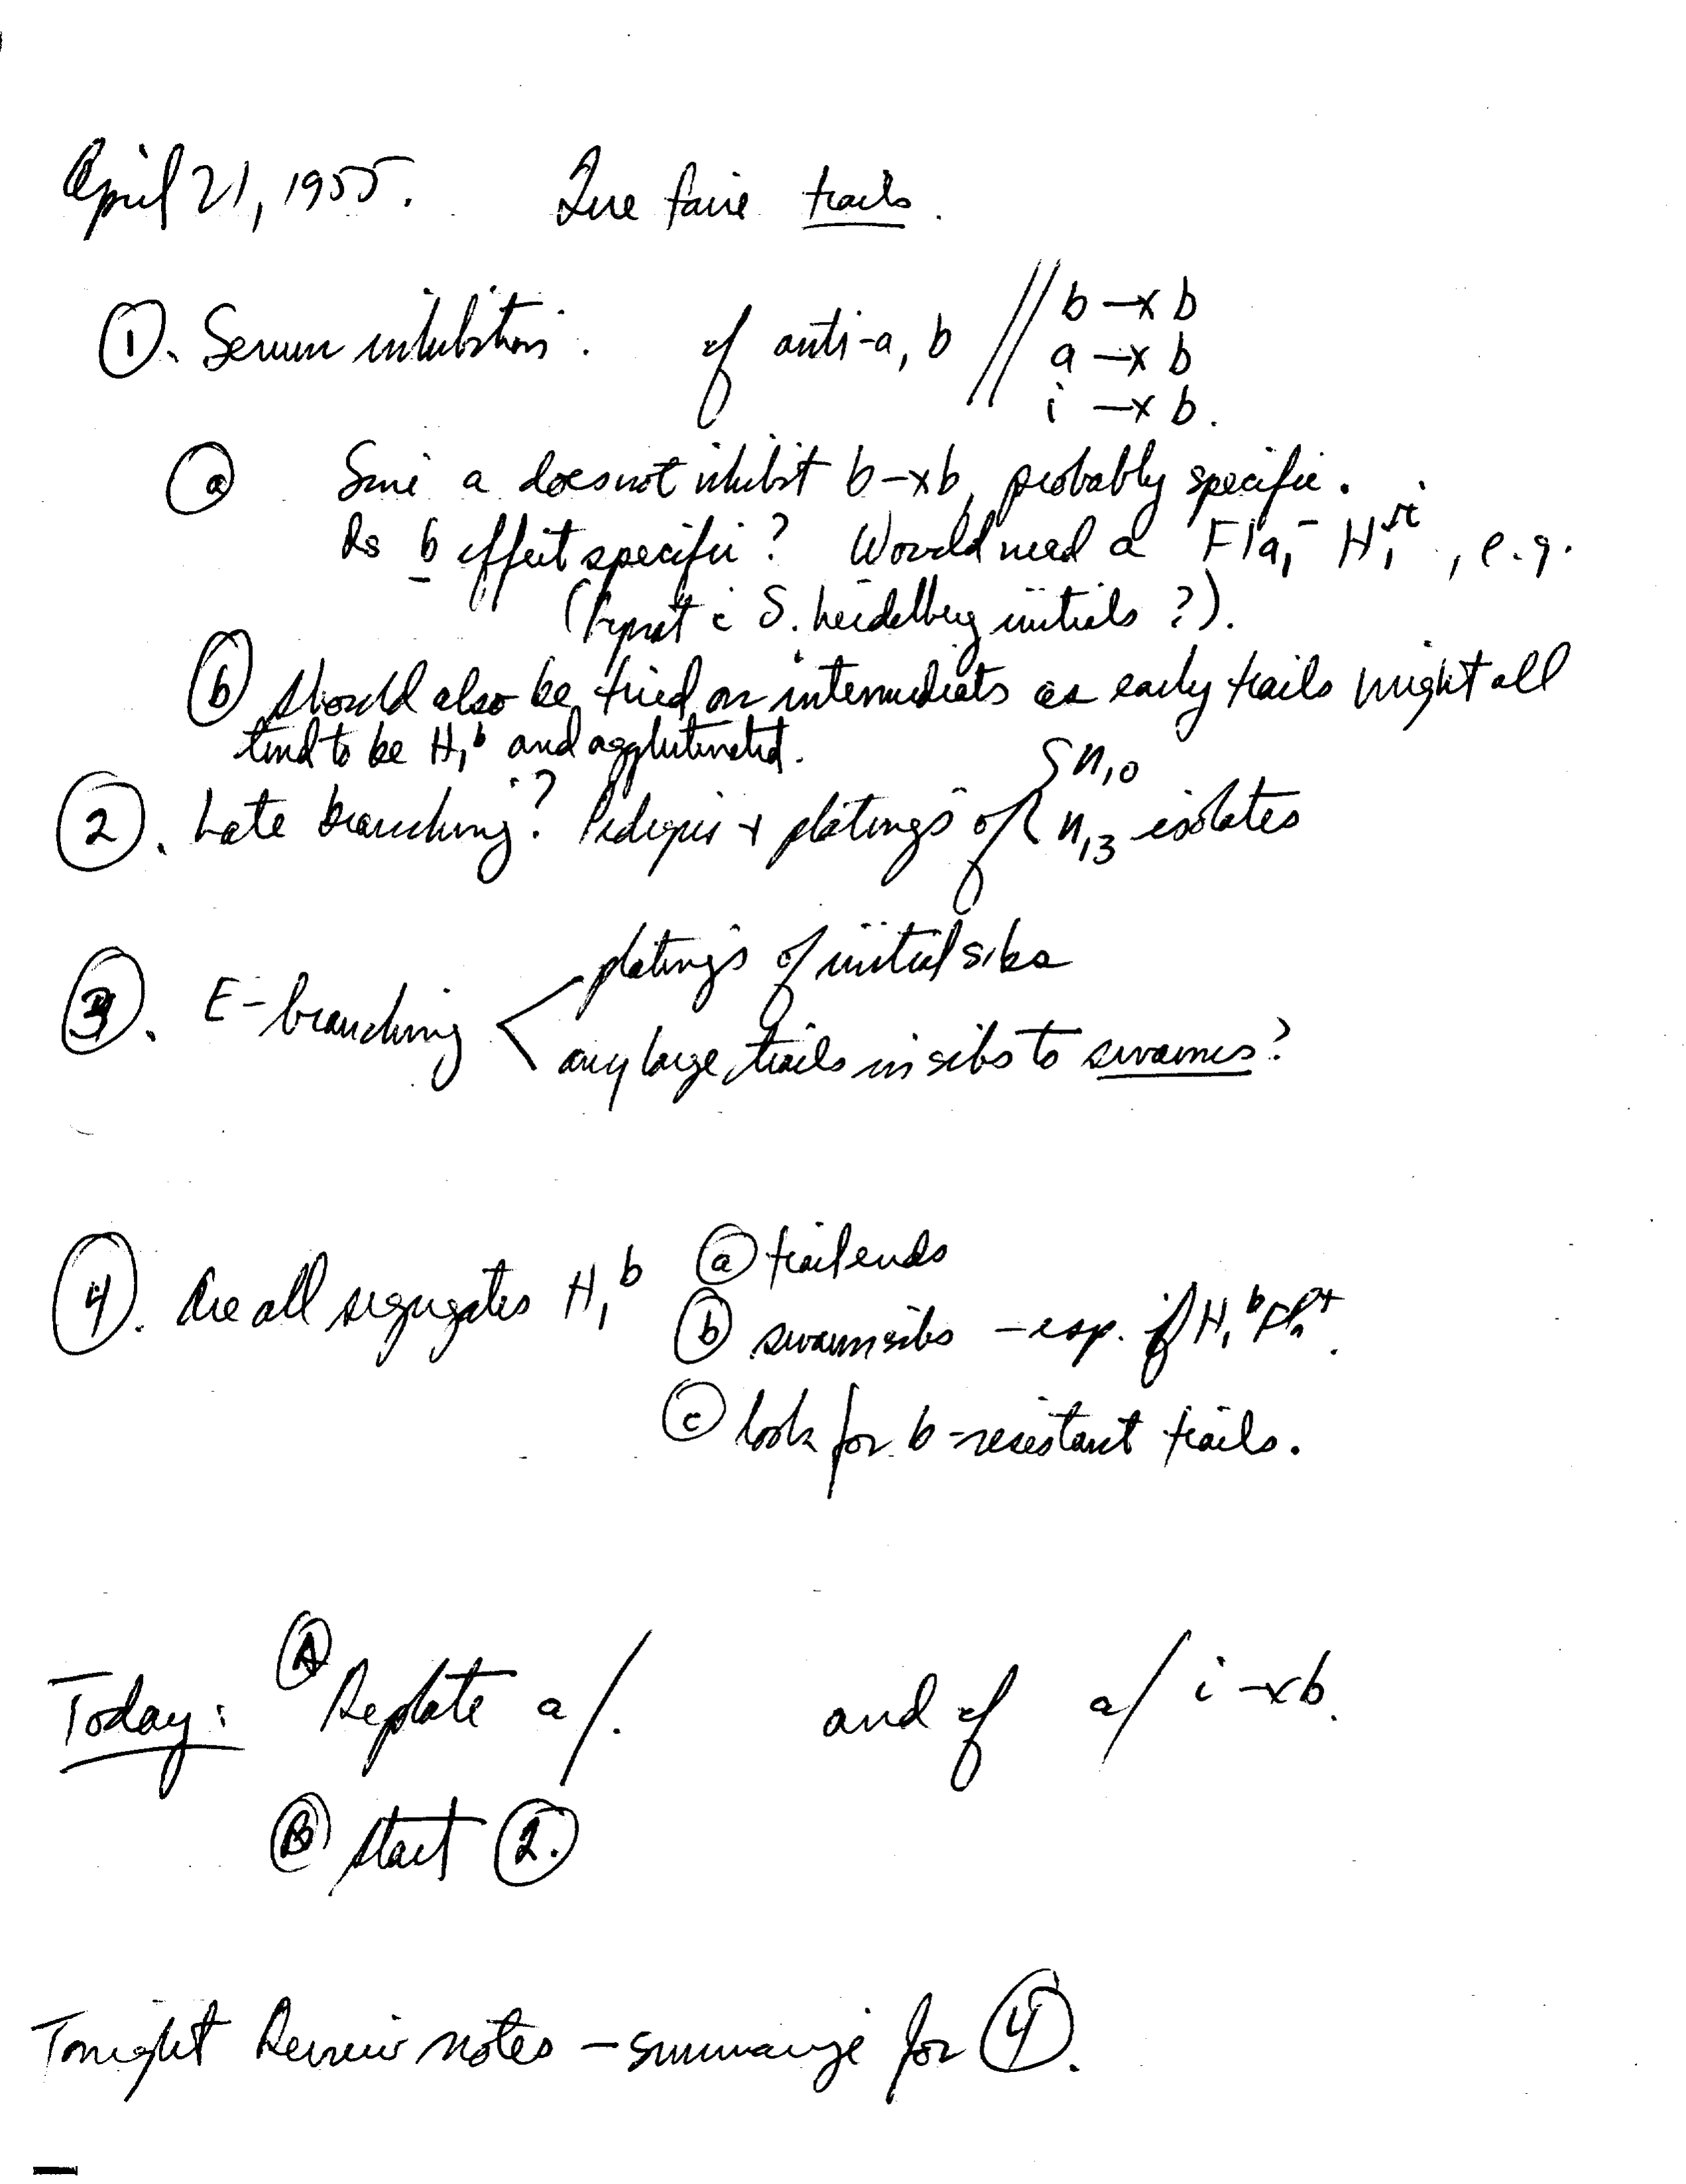 April 21, 1955. Que faire trails.
①. Serum inhibition. of anti-a, b // b —x b
a —x b
i —x b.
ⓐ Since a does not inhibit b -x b, probably specific.
Is b effect specific? Would need a Fla₁⁻ H₁ⁱ, e.g.
(Repeat c̄ S. heidelberg initials ?).
ⓑ should also be tried on intermediates as early trails might all
tend to be H₁ᵇ and agglutinated.
②. Late branching? Pedigrees + platings of { n,0
n,13 isolates
③. E-branching < platings of initial sibs
any large trails in sibs to swarms?
④. Are all segregates H₁ᵇ ⓐ trail ends
ⓑ swarm sibs - esp. if H₁ᵇ
ⓒ look for b-resistant trails.
Today: Ⓐ Replate a/. and of a/ i -x b.
Ⓑ start ②.
Tonight Review notes - summarize for ④.